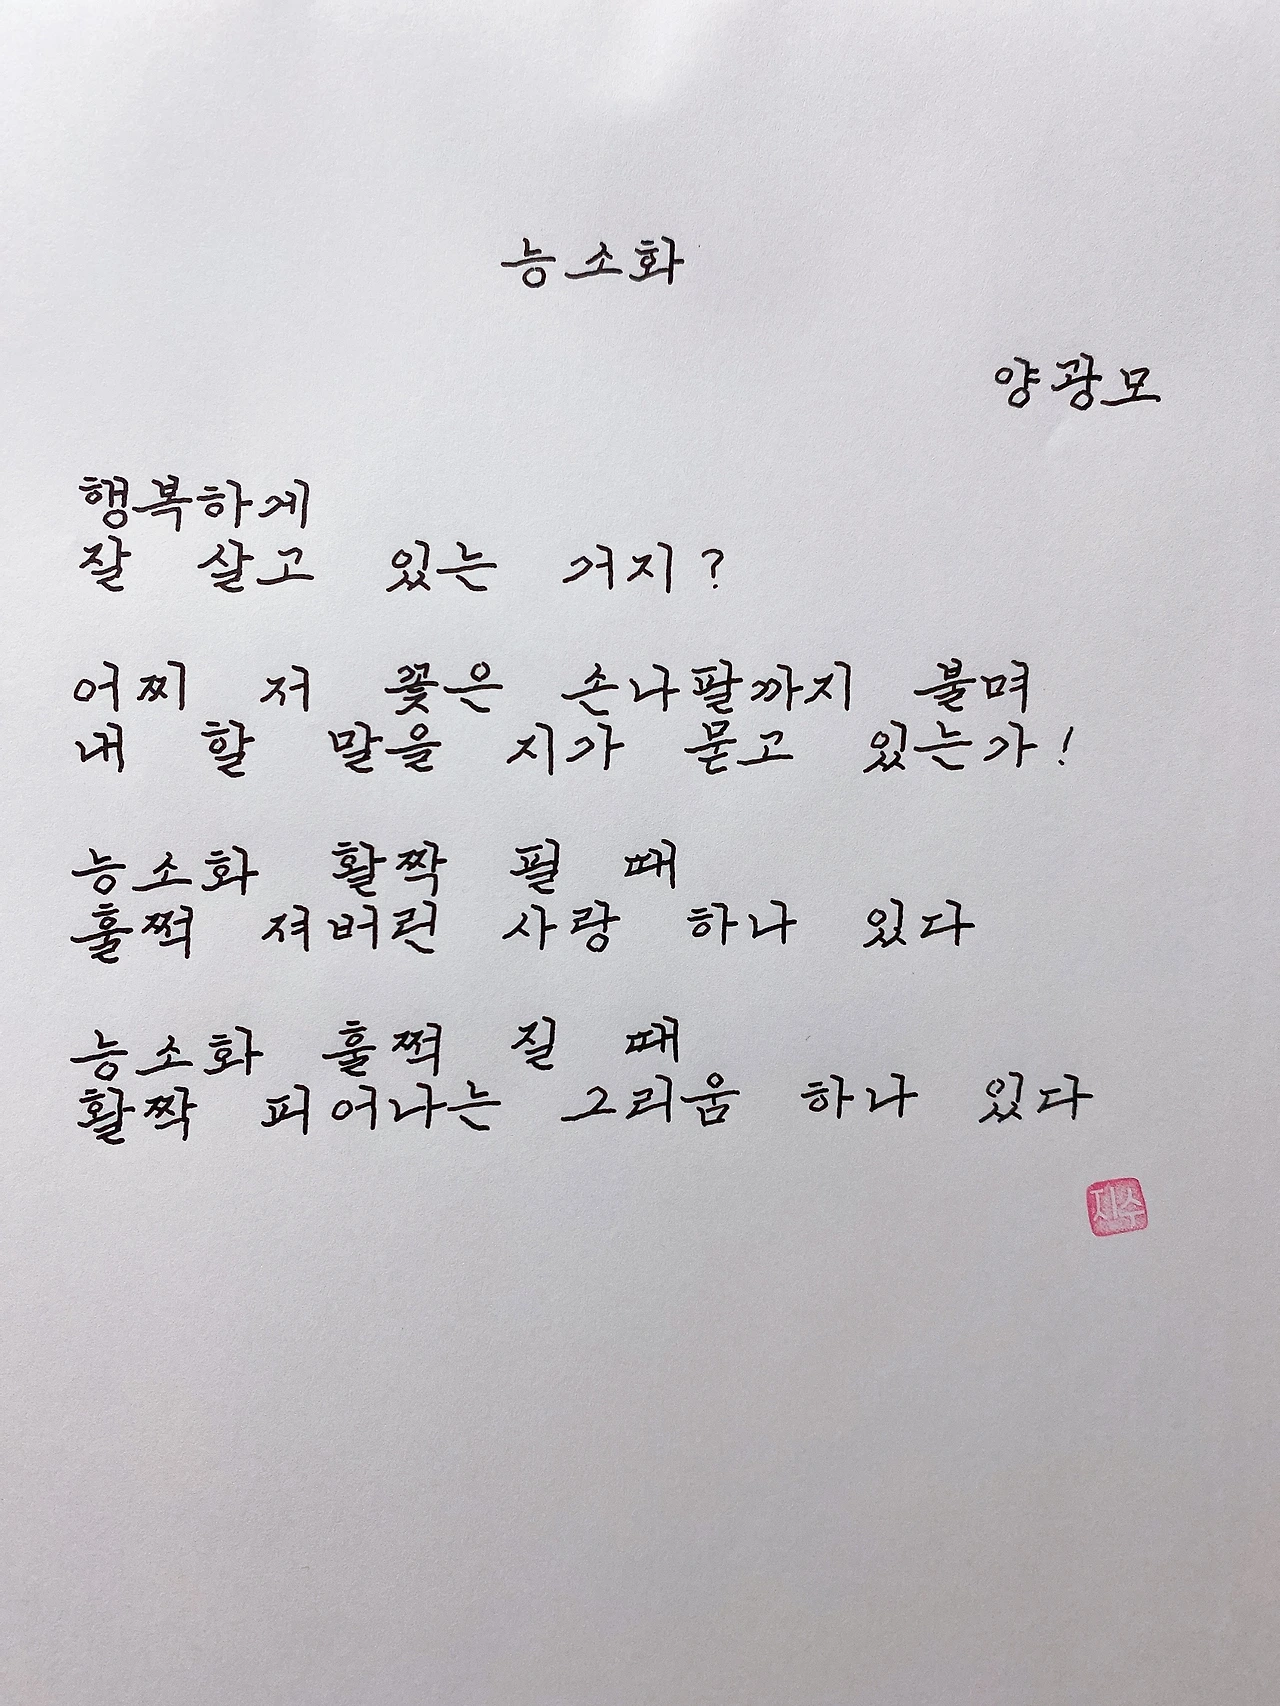 능소화
양광모
행복하게
잘 살고 있는 거지?
어찌 저 꽃은 손나팔까지 불며
내 할 말을 지가 묻고 있는가!
능소화 활짝 필 때
훌쩍 져버린 사랑 하나 있다
능소화 훌쩍 질 때
활짝 피어나는 그리움 하나 있다